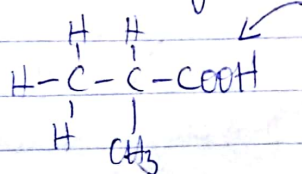 H H
H-C-C-COOH
H
CH3